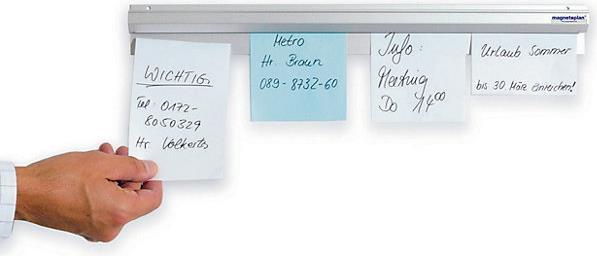 magnetoplan
WICHTIG
Tel: 0172-
8050329
Hr. Volkerts
Metro
Hr. Braun
089-8732-60
Info:
Meeting
Do 14⁰⁰
Urlaub Sommer
bis 30. März einreichen!